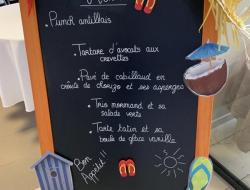 • Punch antillais
• Tartare d'avocats aux
crevettes
• Pavé de cabillaud en
croûte de chorizo et ses asperges
• Trio normand et sa
salade verte
• Tarte tatin et sa
boule de glace vanille
Bon
Appétit!!